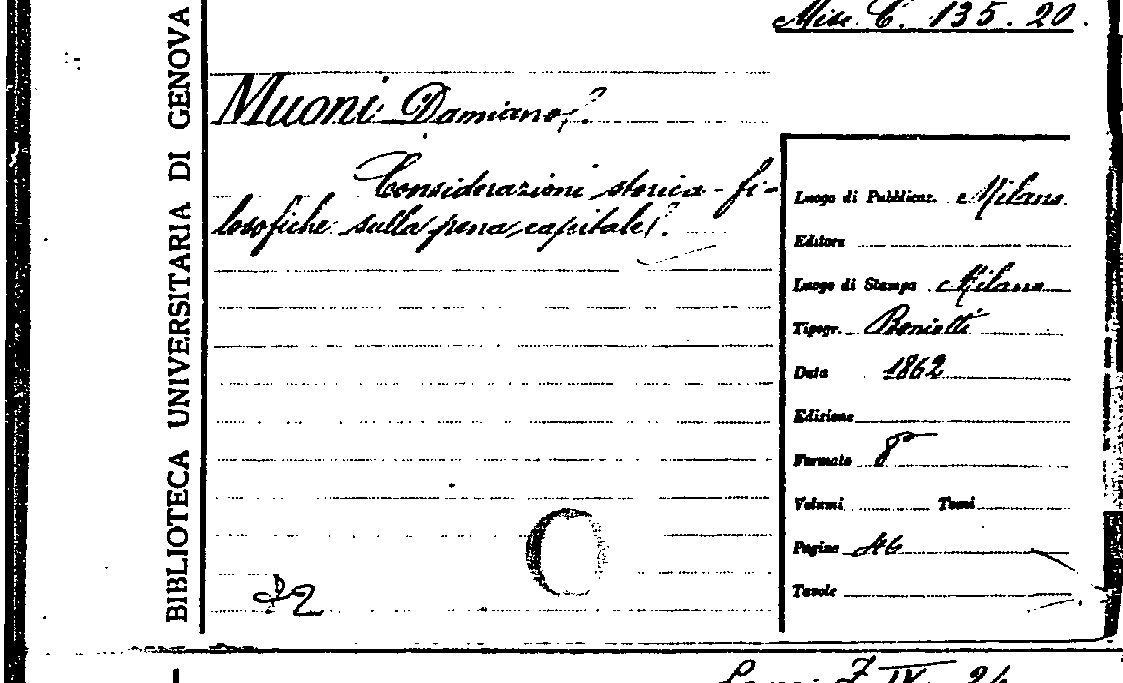 Misc. C. 135. 20.
BIBLIOTECA UNIVERSITARIA DI GENOVA
Muoni Damiano
Considerazioni storico-fi-
losofiche sulla pena capitale.
Luogo di Pubblicaz. Milano
Editore
Luogo di Stampa Milano
Tipogr.
Data 1862
Edizione
Formato 8°
Volumi Tomi
Pagine 46
Tavole
IV. 24